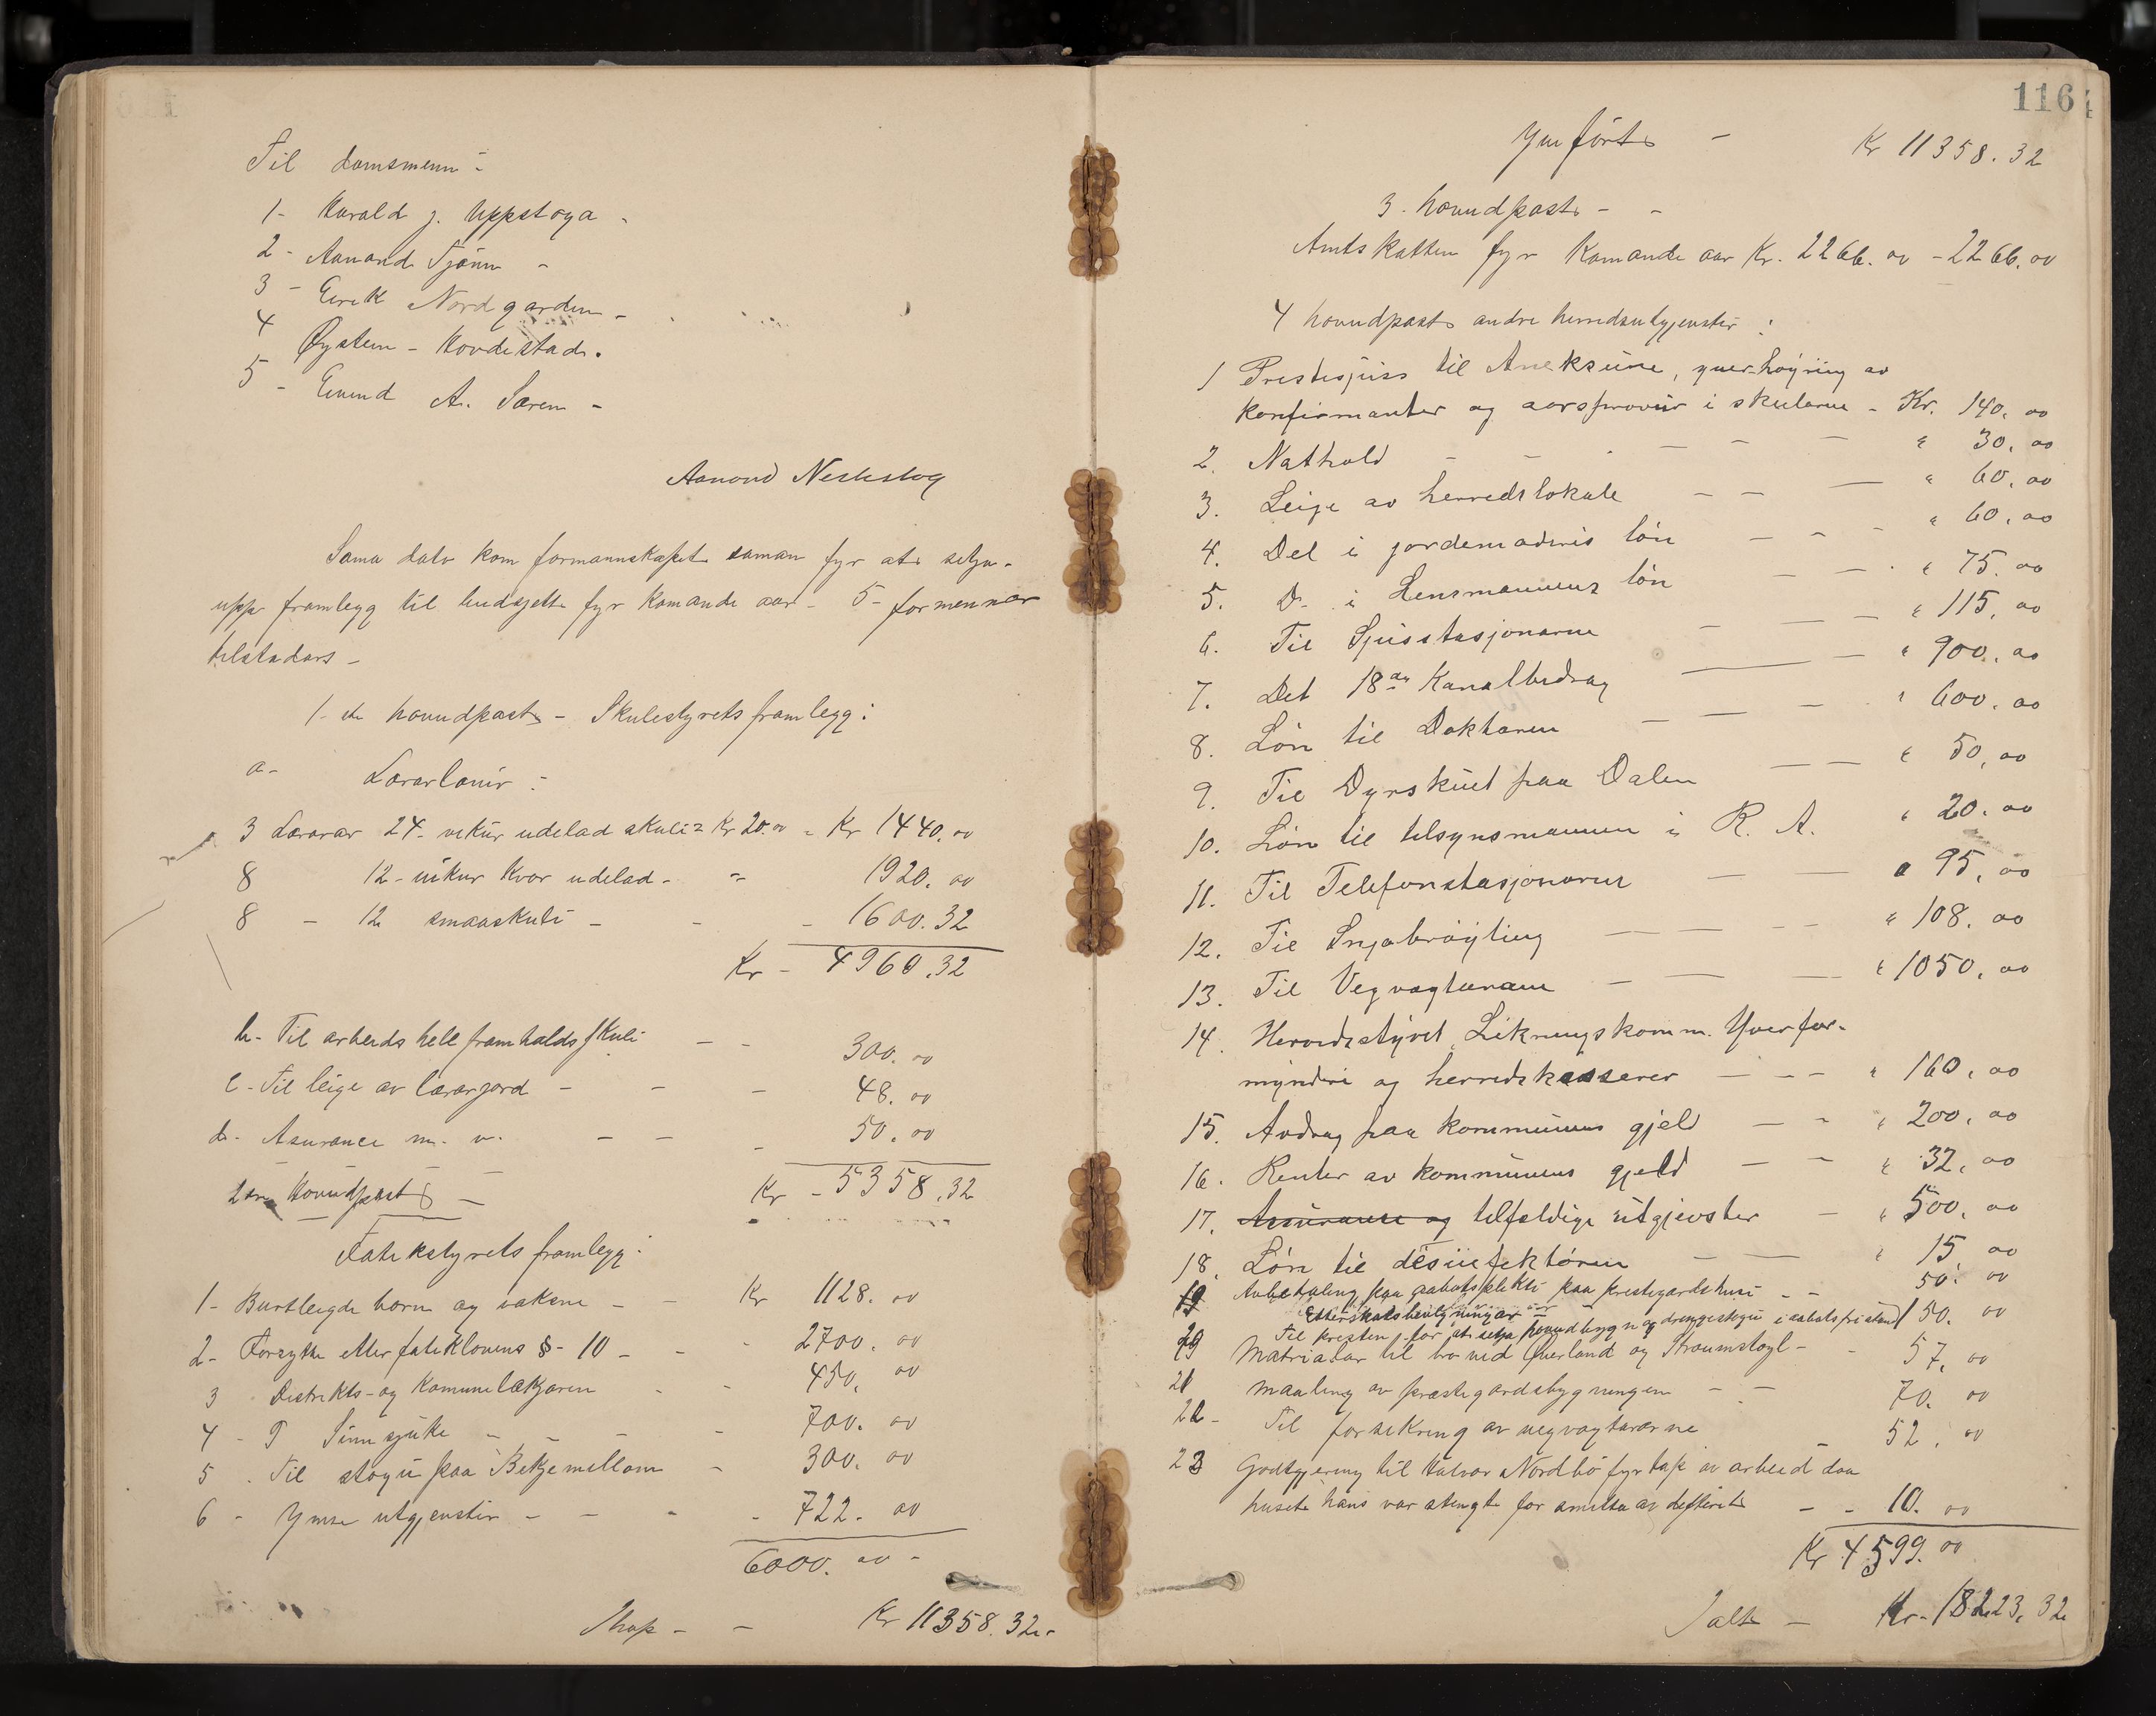 Til domsmenn -
1- Harald J. Uppstoga -
2 - Aanond Tjönn -
3 - Eirik Nordgarden -
4 Øystein - Hovdestad.
5 - Eivind A. Særen -
Aanond Nesteslog
Sama dato kom formannskapet saman fyr at setja-
upp framlegg til budsjett fyr komande aar - 5 - formennar
tilstadars -
1-ste hovudpost - Skulestyrets framlegg:
a- Lærarlönir :
3 Lærarar 24- vikur udelad skuli = Kr 20.00 = Kr 1440.00
8 12-vikur kvar udelad - " 1920.00
8 - 12 smaaskuli - - - 1600.32
Kr - 4960.32
b- Til arbeids hell framhaldsskuli - - 300.00
c- Til leige av lærarjord - - - 48.00
d- Asurance m. v. - - - 50.00
2dre Hovudpost - Kr - 5358.32
Fatikstyrets framlegg:
1- Burtleigde born og vaksne - - Kr 1128.00
2- Forsytte etter fatiklovens § - 10 - - - 2700.00
3 Distrikts- og Komunelækjaren - - 450.00
4 - T Sinnsjuke - - - - 700.00
5 - Til stogu paa Bekjemellom - 300.00
6 - Ymse utgjenstir - - - - 722.00
6000.00 -
Ihop - - Kr 11358.32 -
116
Ymført - Kr 11358.32
3. hovudpost - -
Amtskatten fyr Komande aar Kr. 2266.00 - 2266.00
4 hovudpost andre herredsutgjenster :
1 Prestesjuss til Aneksune, yver-höyring av
konfirmanter og aarsprovur i skularne - Kr. 140.00
2. Nathold - - - - - - " 30.00
3. Leige av herredslokale - - - " 60.00
4. Del i jordemoderis lön - - - " 60.00
5. D- i Lensmannens lön - - - " 75.00
6. Til Sjusstasjonarne - - - - " 115.00
7. Det 18de Kanalbidrag - - " 900.00
8. Lön til Doktaren - - - " 600.00
9. Til Dyrskuet paa Dalen - - " 50.00
10. Lön til tilsynsmannen i R. A. " 20.00
11. Til Telefonstasjonarne - - " 95.00
12. Til Snjobröyting - - - - " 108.00
13. Til Vegvagtarane - - - " 1050.00
14. Herredsstyret, Likningskomm. Yverfor-
mynderi og herredskasserer - - - " 160.00
15. Avdrag paa kommunens gjeld - - " 200.00
16. Renter av kommunens gjeld - - " 32.00
17. Assurance og tilfeldige utgjevster - " 500.00
18. Lön til desinfektören - - " 15 00
19 Avbetaling paa aabotsplikti paa prestegardshusi - - 50.00
Etterskatsbevilgningar
20 Til presten for at setja hovudbygn og drengestogu i aabotsfri stand 150.00
19 Matrialar til bro ved Överland og Straumstogl - - 57.00
21 Maaling av præstegardsbygningen - - 70.00
22 - Til forsekring av vegvagtararne 52.00
23 Godtgjering til Halvor Nordbö fyr tap av arbeid daa
huset hans var stengt for smitte av difterit - - 10.00
Kr 4599.00
Ialt - Kr- 18223.32